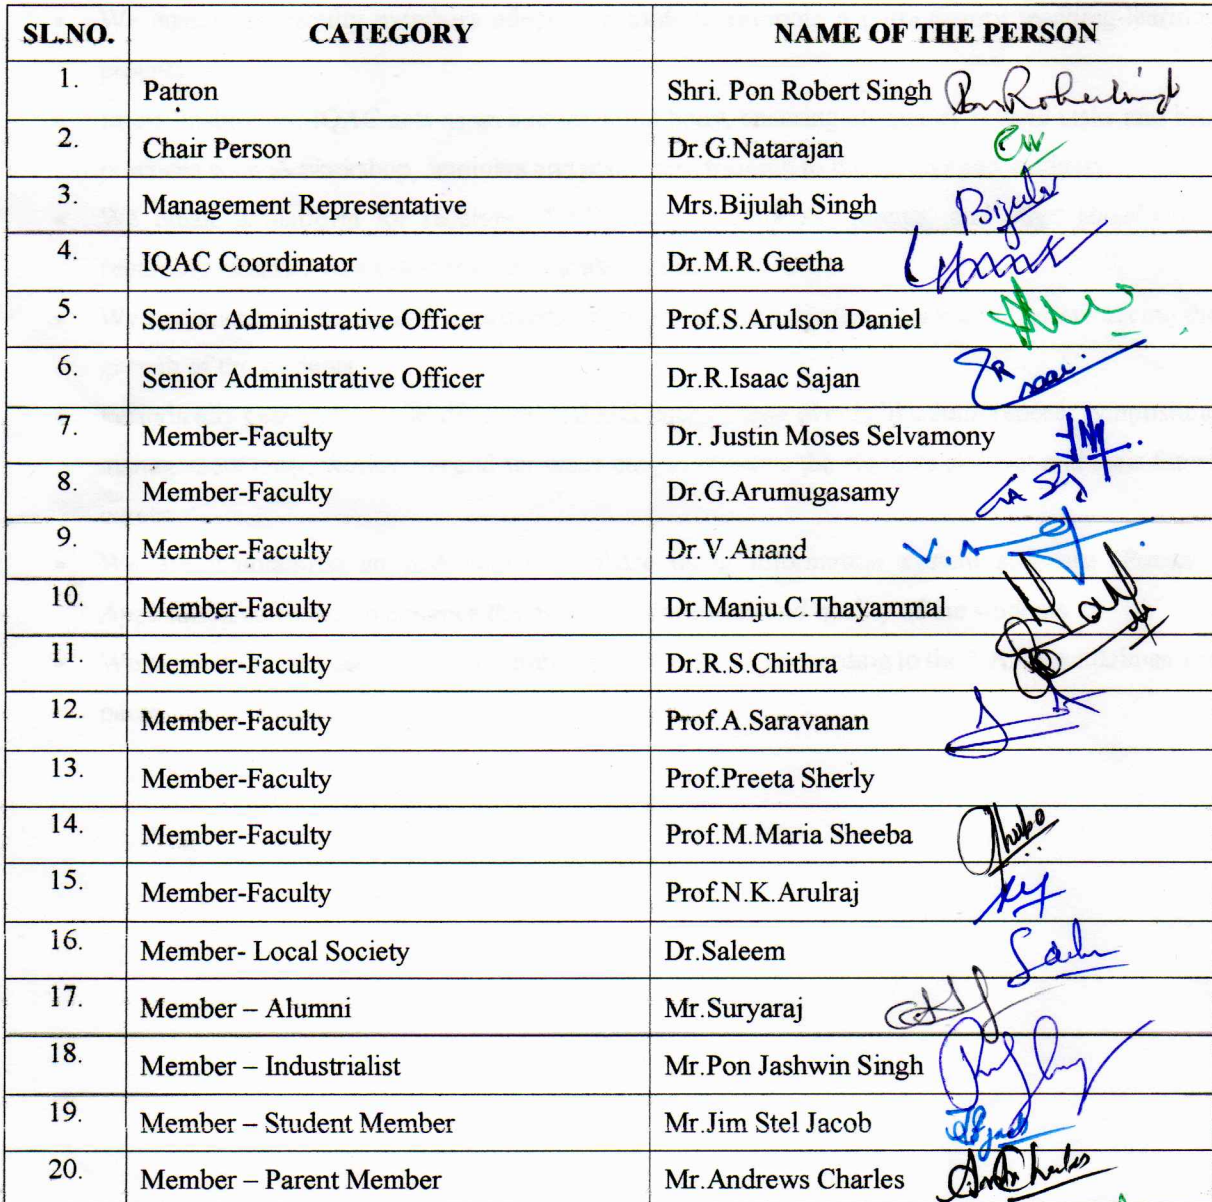 SL.NO. CATEGORY NAME OF THE PERSON
1. Patron Shri. Pon Robert Singh
2. Chair Person Dr.G.Natarajan
3. Management Representative Mrs.Bijulah Singh
4. IQAC Coordinator Dr.M.R.Geetha
5. Senior Administrative Officer Prof.S.Arulson Daniel
6. Senior Administrative Officer Dr.R.Isaac Sajan
7. Member-Faculty Dr. Justin Moses Selvamony
8. Member-Faculty Dr.G.Arumugasamy
9. Member-Faculty Dr.V.Anand
10. Member-Faculty Dr.Manju.C.Thayammal
11. Member-Faculty Dr.R.S.Chithra
12. Member-Faculty Prof.A.Saravanan
13. Member-Faculty Prof.Preeta Sherly
14. Member-Faculty Prof.M.Maria Sheeba
15. Member-Faculty Prof.N.K.Arulraj
16. Member- Local Society Dr.Saleem
17. Member – Alumni Mr.Suryaraj
18. Member – Industrialist Mr.Pon Jashwin Singh
19. Member – Student Member Mr.Jim Stel Jacob
20. Member – Parent Member Mr.Andrews Charles